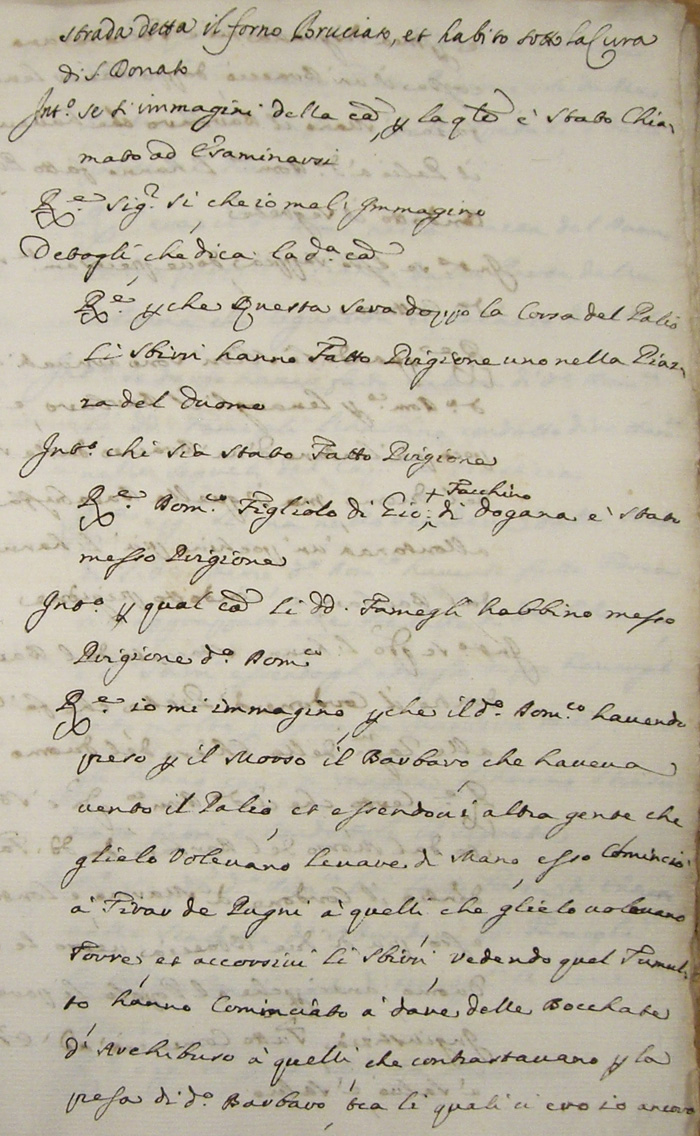 strada detta il forno Bruciato, et habito sotto la Cura
di S Donato
Int.o se si immagini della cã, p la q̃le è stato Chia-
mato ad Esaminarsi
R.e Sig.r si che io me l'immagino
Dettogli che dica la d.a cã
R.e p che Questa sera doppo la Corsa del Palio
li sbirri hanno Fatto Prigione uno nella Piaz-
za del Duomo
Int.o chi sia stato Fatto Prigione
R.e Dom.co Figliolo di Gio: + Facchino di dogana è stato
messo Prigione
Int.o p qual cã li dd. Famegli habbino messo
Prigione d.o Dom.co
R.e io mi immagino, p che il d.o Dom.co havendo
preso p il Morso il Barbaro che haveva
vento il Palio, et essendovi altra gente che
glielo Volevano levare di Mano, esso Cominciò
à Tirar de Pugni à quelli che glielo volevano
Torre, et accorsivi li sbirri, vedendo quel Tumul-
to hanno Cominciato à dare delle Bocchate
d'Archibuso à quelli che contrastavano p la
presa di d.o Barbaro, tra li quali ci ero io ancora